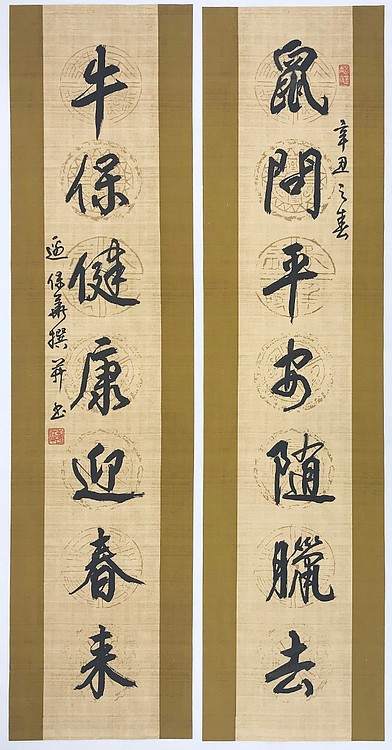 鼠問平安随臘去
辛丑之春
牛保健康迎春来
保華撰并书